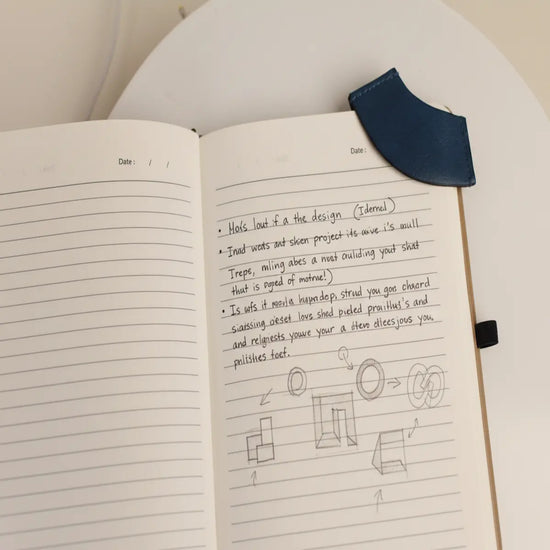 Date : / /
Date :
• Ha's lout if a the design (Idernel)
• Inad weats ant sken project its wive i's mull
Treps, mling abes a nost auilding yout shat
that is oged of motrue!)
• Is wfs it hapndep, strud you goo chaord
siaissing deset love shed pieded praithis's and
and relgnests youwe your a dtew dleesjous you,
pnlishes toef.